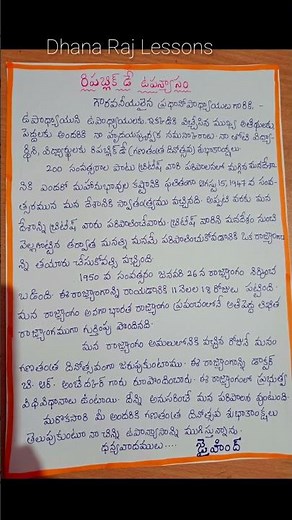 Dhana Raj Lessons
రిపబ్లిక్ డే ఉపన్యాసం
గౌరవనీయులైన ప్రధానోపాధ్యాయుట గారికి,
ఉపాధ్యాయుని ఉపాధ్యాయులకు ఇక్కడికి విచ్చేసిన ముఖ్య అతిథులకు
పెద్దలకు అందరికి నా హృదయపూర్వక నమస్కారాలు. నా తోటి విద్యా
ర్థిని, విద్యార్థులకు రిపబ్లిక్ డే (గణతంత్ర దినోత్సవ) శుభాకాంక్షలు.
200 సంవత్సరాల పాటు బ్రిటీష్ వారి పరిపాలనలో మగ్గిన మనదేశా
నికి ఎందరో మహానుభావుల కష్టానికి ఫలితంగా ఆగస్టు 15, 1947 వ సంవ
త్సరమున మన దేశానికి స్వాతంత్ర్యము వచ్చినది. అప్పటి వరకు మన
దేశాన్ని బ్రిటీష్ వారు పరిపాలించేవారు. బ్రిటీష్ వారిని మనదేశం నుంచి
వెల్లగొట్టిన తర్వాత మనల్ని మనమే పరిపాలించుకోవడానికి ఒక రాజ్యాంగా
న్ని తయారు చేసుకోవల్సి వచ్చింది.
1950 వ సంవత్సరం జనవరి 26 న రాజ్యాంగం నిర్మించ
బడింది. ఈ రాజ్యాంగాన్ని రాయడానికి 11 నెలల 18 రోజులు పట్టింది.
మన రాజ్యాంగం అనగా భారత రాజ్యాంగం ప్రపంచంలోనే అతిపెద్ద లిఖిత
రాజ్యాంగముగా గుర్తింపు పొందినది.
మన రాజ్యాంగం అమలులోనికి వచ్చిన రోజునే మనం
గణతంత్ర దినోత్సవంగా జరుపుకుంటాము. ఈ రాజ్యాంగాన్ని డాక్టర్
బి. ఆర్. అంబేద్కర్ గారు రూపొందించారు. ఈ రాజ్యాంగంలో ప్రభుత్వ
విధివిధానాలు ఉంటాయి. దీన్ని అనుసరించే మన పరిపాలన వుంటుంది.
మరొకసారి మీ అందరికి గణతంత్ర దినోత్సవ శుభాకాంక్షలు
తెలుపుకుంటూ నా చిన్ని ఉపాన్యాసంన్ని ముగిస్తున్నాను.
ధన్యవాదములు.... జైహింద్